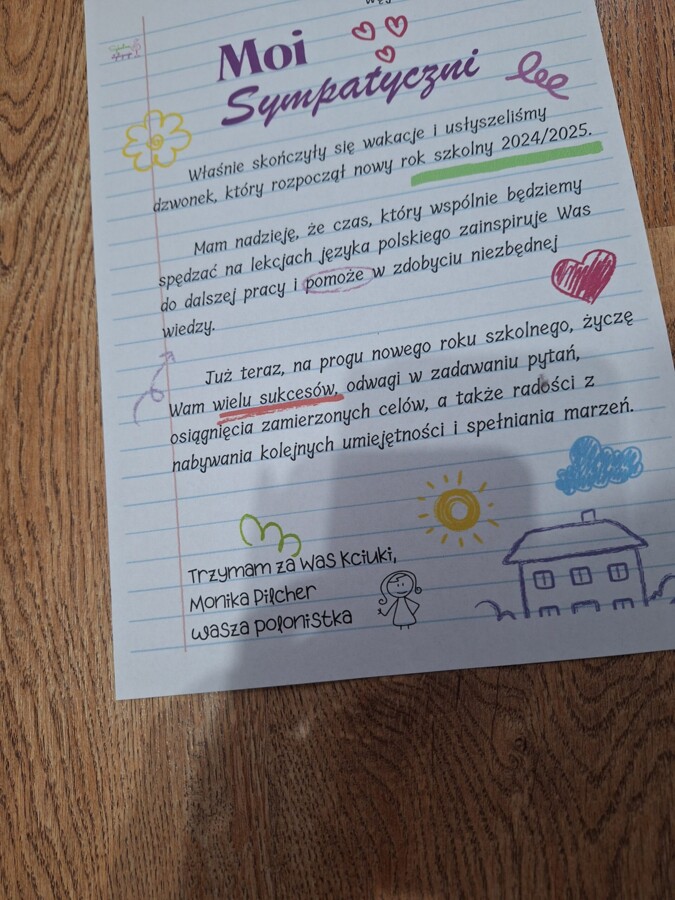 Moi
Sympatyczni
Właśnie skończyły się wakacje i usłyszeliśmy
dzwonek, który rozpoczął nowy rok szkolny 2024/2025.
Mam nadzieję, że czas, który wspólnie będziemy
spędzać na lekcjach języka polskiego zainspiruje Was
do dalszej pracy i pomoże w zdobyciu niezbędnej
wiedzy.
Już teraz, na progu nowego roku szkolnego, życzę
Wam wielu sukcesów, odwagi w zadawaniu pytań,
osiągnięcia zamierzonych celów, a także radości z
nabywania kolejnych umiejętności i spełniania marzeń.
Trzymam za Was Kciuki,
Monika Pilcher
wasza polonistka